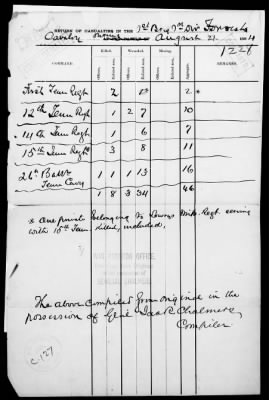 RETURN OF CASUALTIES IN THE 1st Brig 1st Div Forrest's
Cavalry August 21 1864
1221
Killed. Wounded. Aggregate.
COMMAND. Officers. Enlisted men. Officers. Enlisted men. REMARKS.
First Tenn Regt 2 2 *
12th Tenn Regt 1 2 7 10
14th Tenn Regt 1 6 7
15th Tenn Regt 3 8 11
26th Batt 1 1 1 13 16
Tenn Cavy
1 8 3 34 46
* One private belonging to Regt serving
with 15th Tenn killed, included.
WAR RECORDS OFFICE,
The above compiled from original in the
possession of Genl Jas R. Chalmers,
Compiler.
C. 127